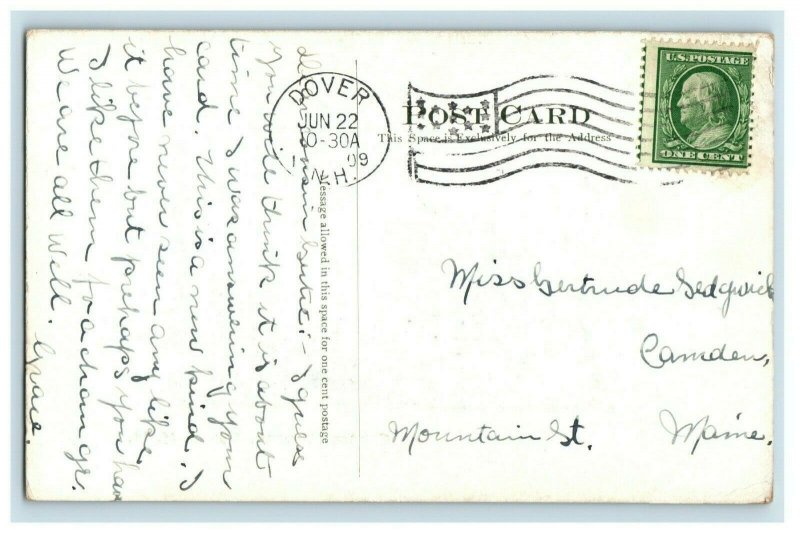 DOVER
JUN 22
0-30A
09
N.H.
POST CARD
This Space is Exclusively for the Address
U.S. POSTAGE
ONE CENT
Message allowed in this space for one cent postage
Cousin Gertie:- I guess
you will think it is about
time I was answering your
card. This is a new kind. I
have never seen any like
it before but prehaps you have
I like them for a change.
We are all well. Grace.
Miss Gertrude Sedgwick
Camden,
Mountain St. Maine.